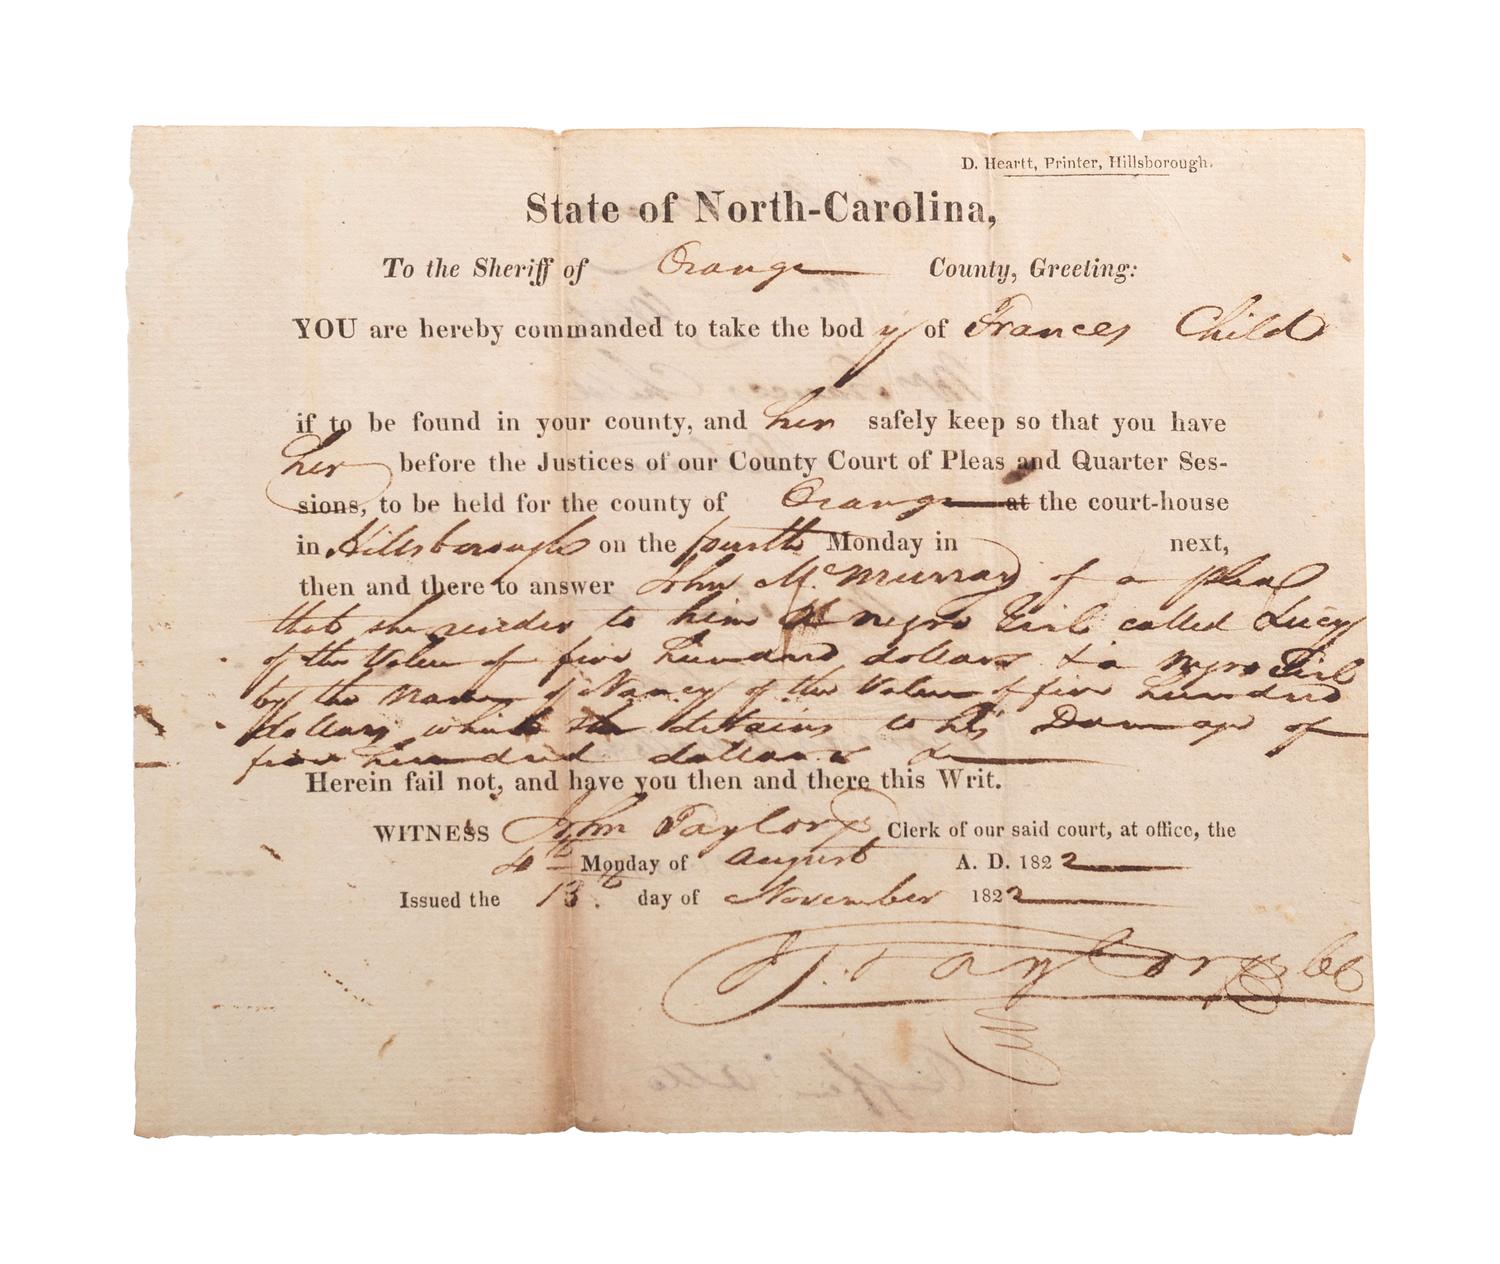 D. Heartt, Printer, Hillsborough.
State of North-Carolina,
To the Sheriff of Orange County, Greeting:
YOU are hereby commanded to take the body of Frances Child
if to be found in your county, and her safely keep so that you have
her before the Justices of our County Court of Pleas and Quarter Ses-
sions, to be held for the county of Orange at the court-house
in Hillsborough on the fourth Monday in next,
then and there to answer John McMurray of a plea
that she render to him a negro Girl called Lucy
of the Value of five hundred dollars & a Negro Girl
by the name of Nancy of the Value of five hundred
dollars which she detains to his Damage of
five hundred dollars
Herein fail not, and have you then and there this Writ.
WITNESS John Taylor Clerk of our said court, at office, the
4th Monday of August A. D. 1822
Issued the 13th day of November 1822
J. Taylor